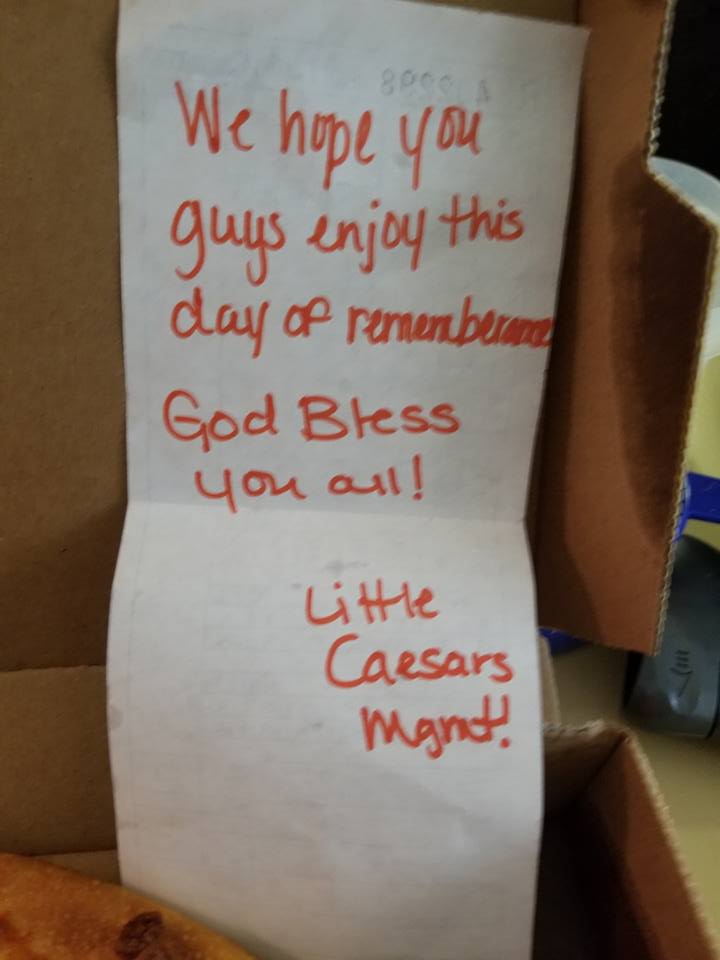 We hope you
guys enjoy this
day of rememberance
God Bless
you all!
Little
Caesars
Mgmt!